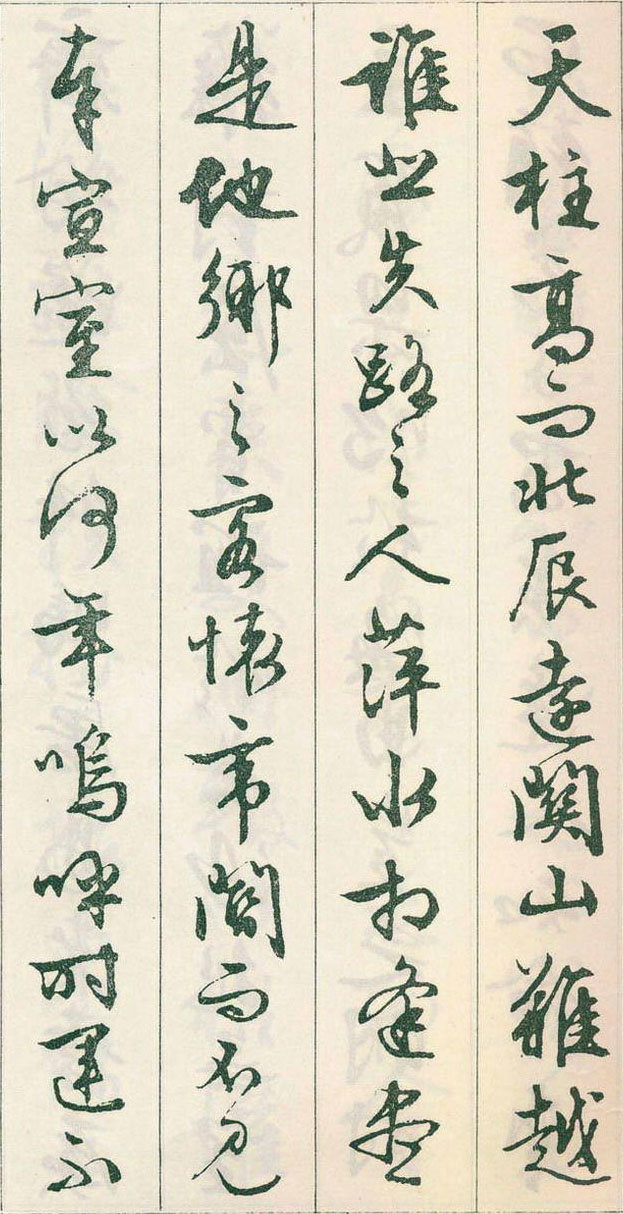 天柱高而北辰遠關山難越
誰悲失路之人萍水相逢盡
是他鄉之客懷帝閽而不見
奉宣室以何年嗚呼時運不